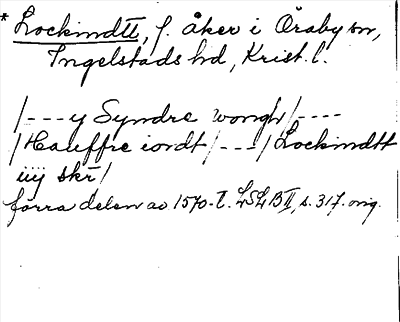 * Lockindtt, f. åker i Öraby sn,
Ingelstads hd, Krist. l.
/---y Syndre wongh/----
/Hauffre iordt/---/Lockindtt
iiij skr/
förra delen av 1570-t. LSLB II, s. 317. orig.